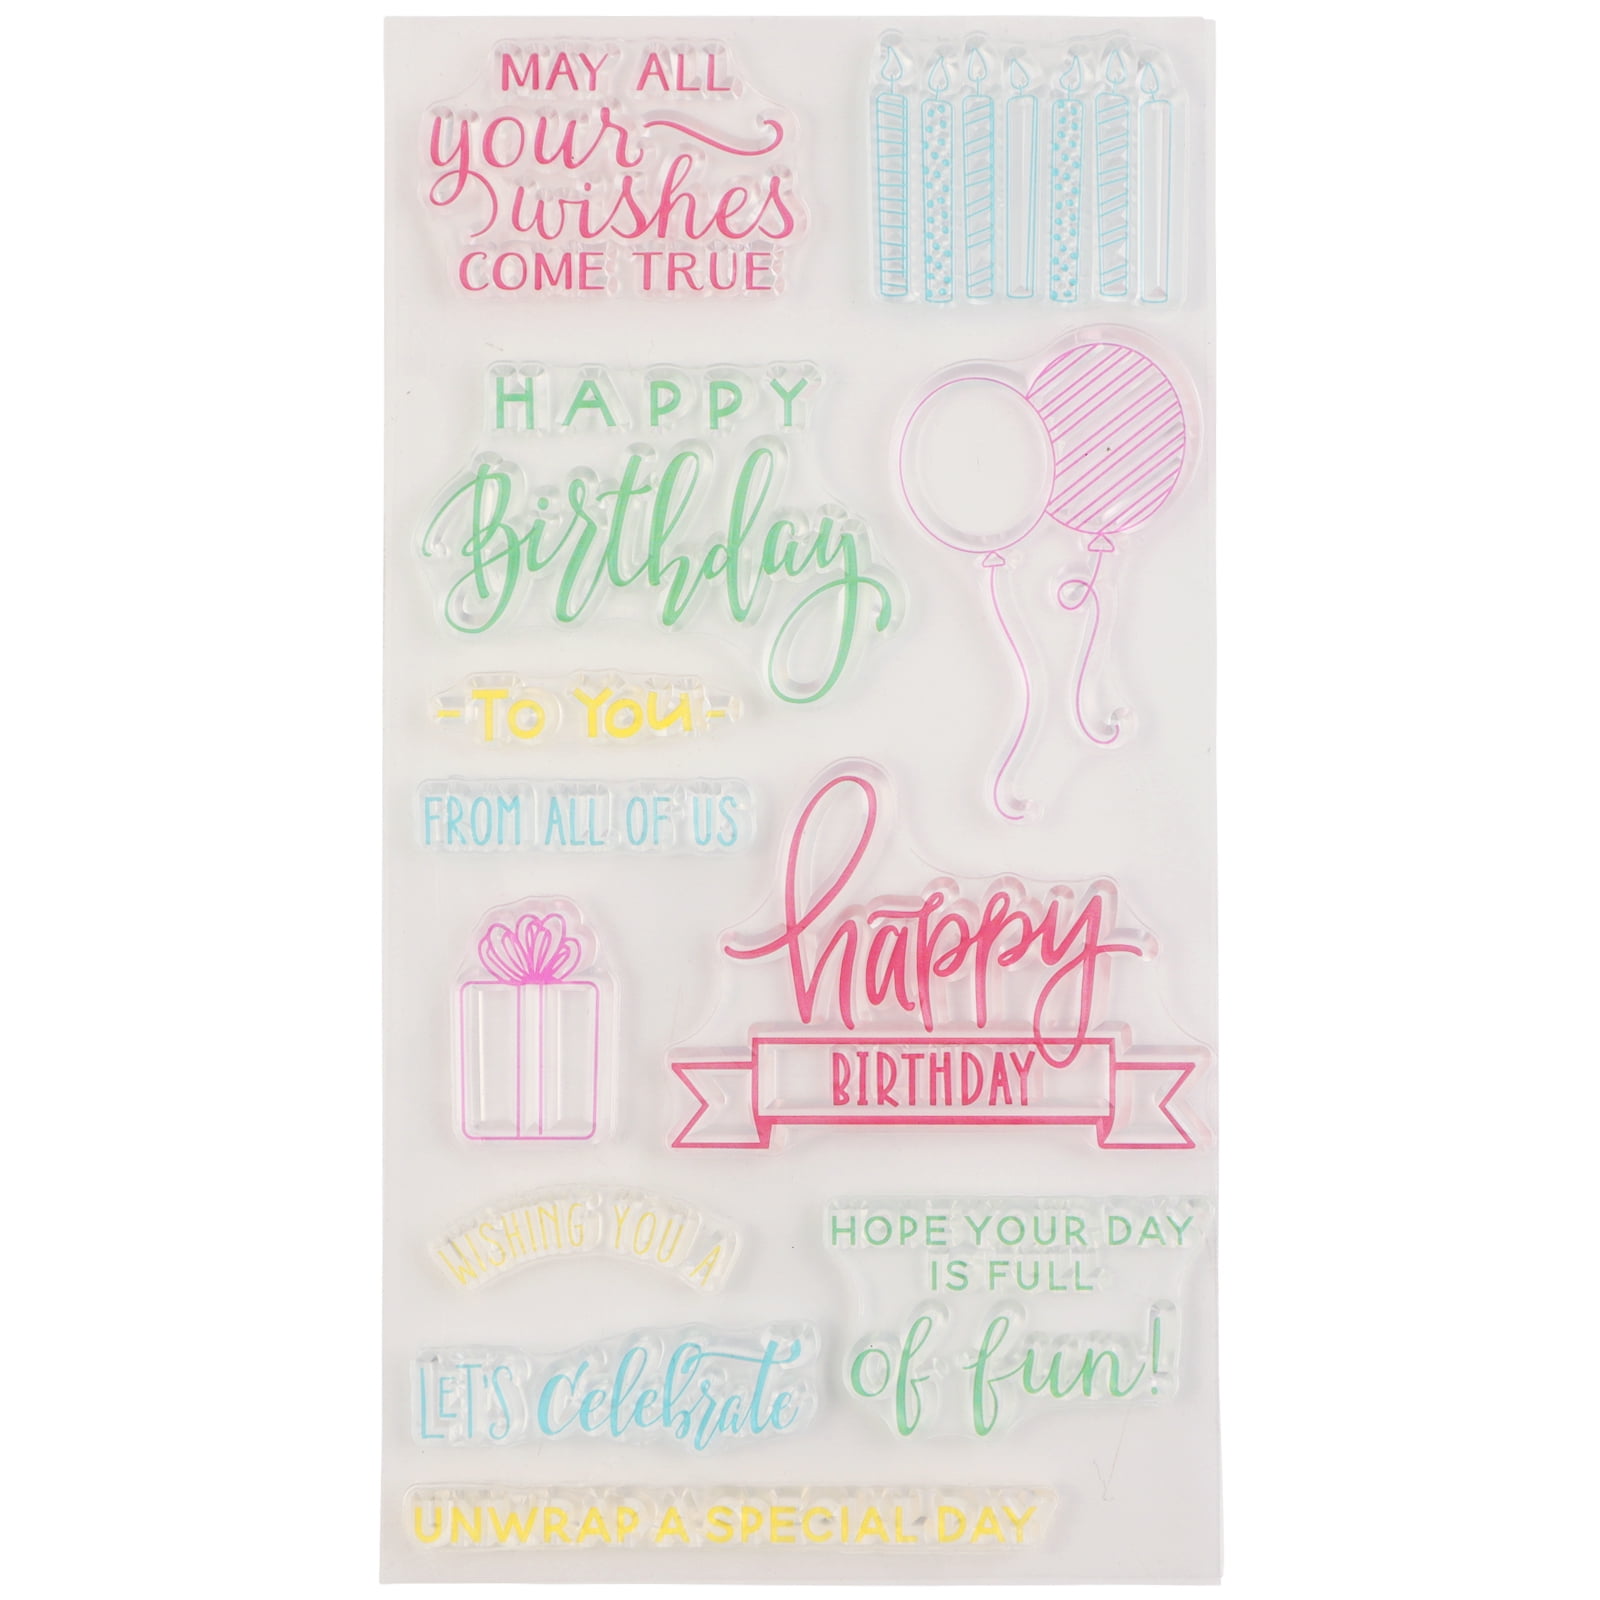 MAY ALL
your
wishes
COME TRUE
HAPPY
Birthday
-To You-
FROM ALL OF US
happy
BIRTHDAY
WISHING YOU A
HOPE YOUR DAY
IS FULL
of fun!
LET'S Celebrate
UNWRAP A SPECIAL DAY